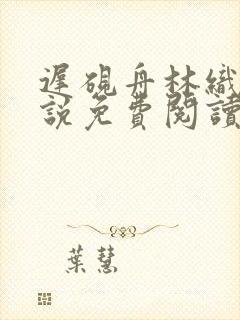 遲硯舟林織
說免費閱讀
葉慧